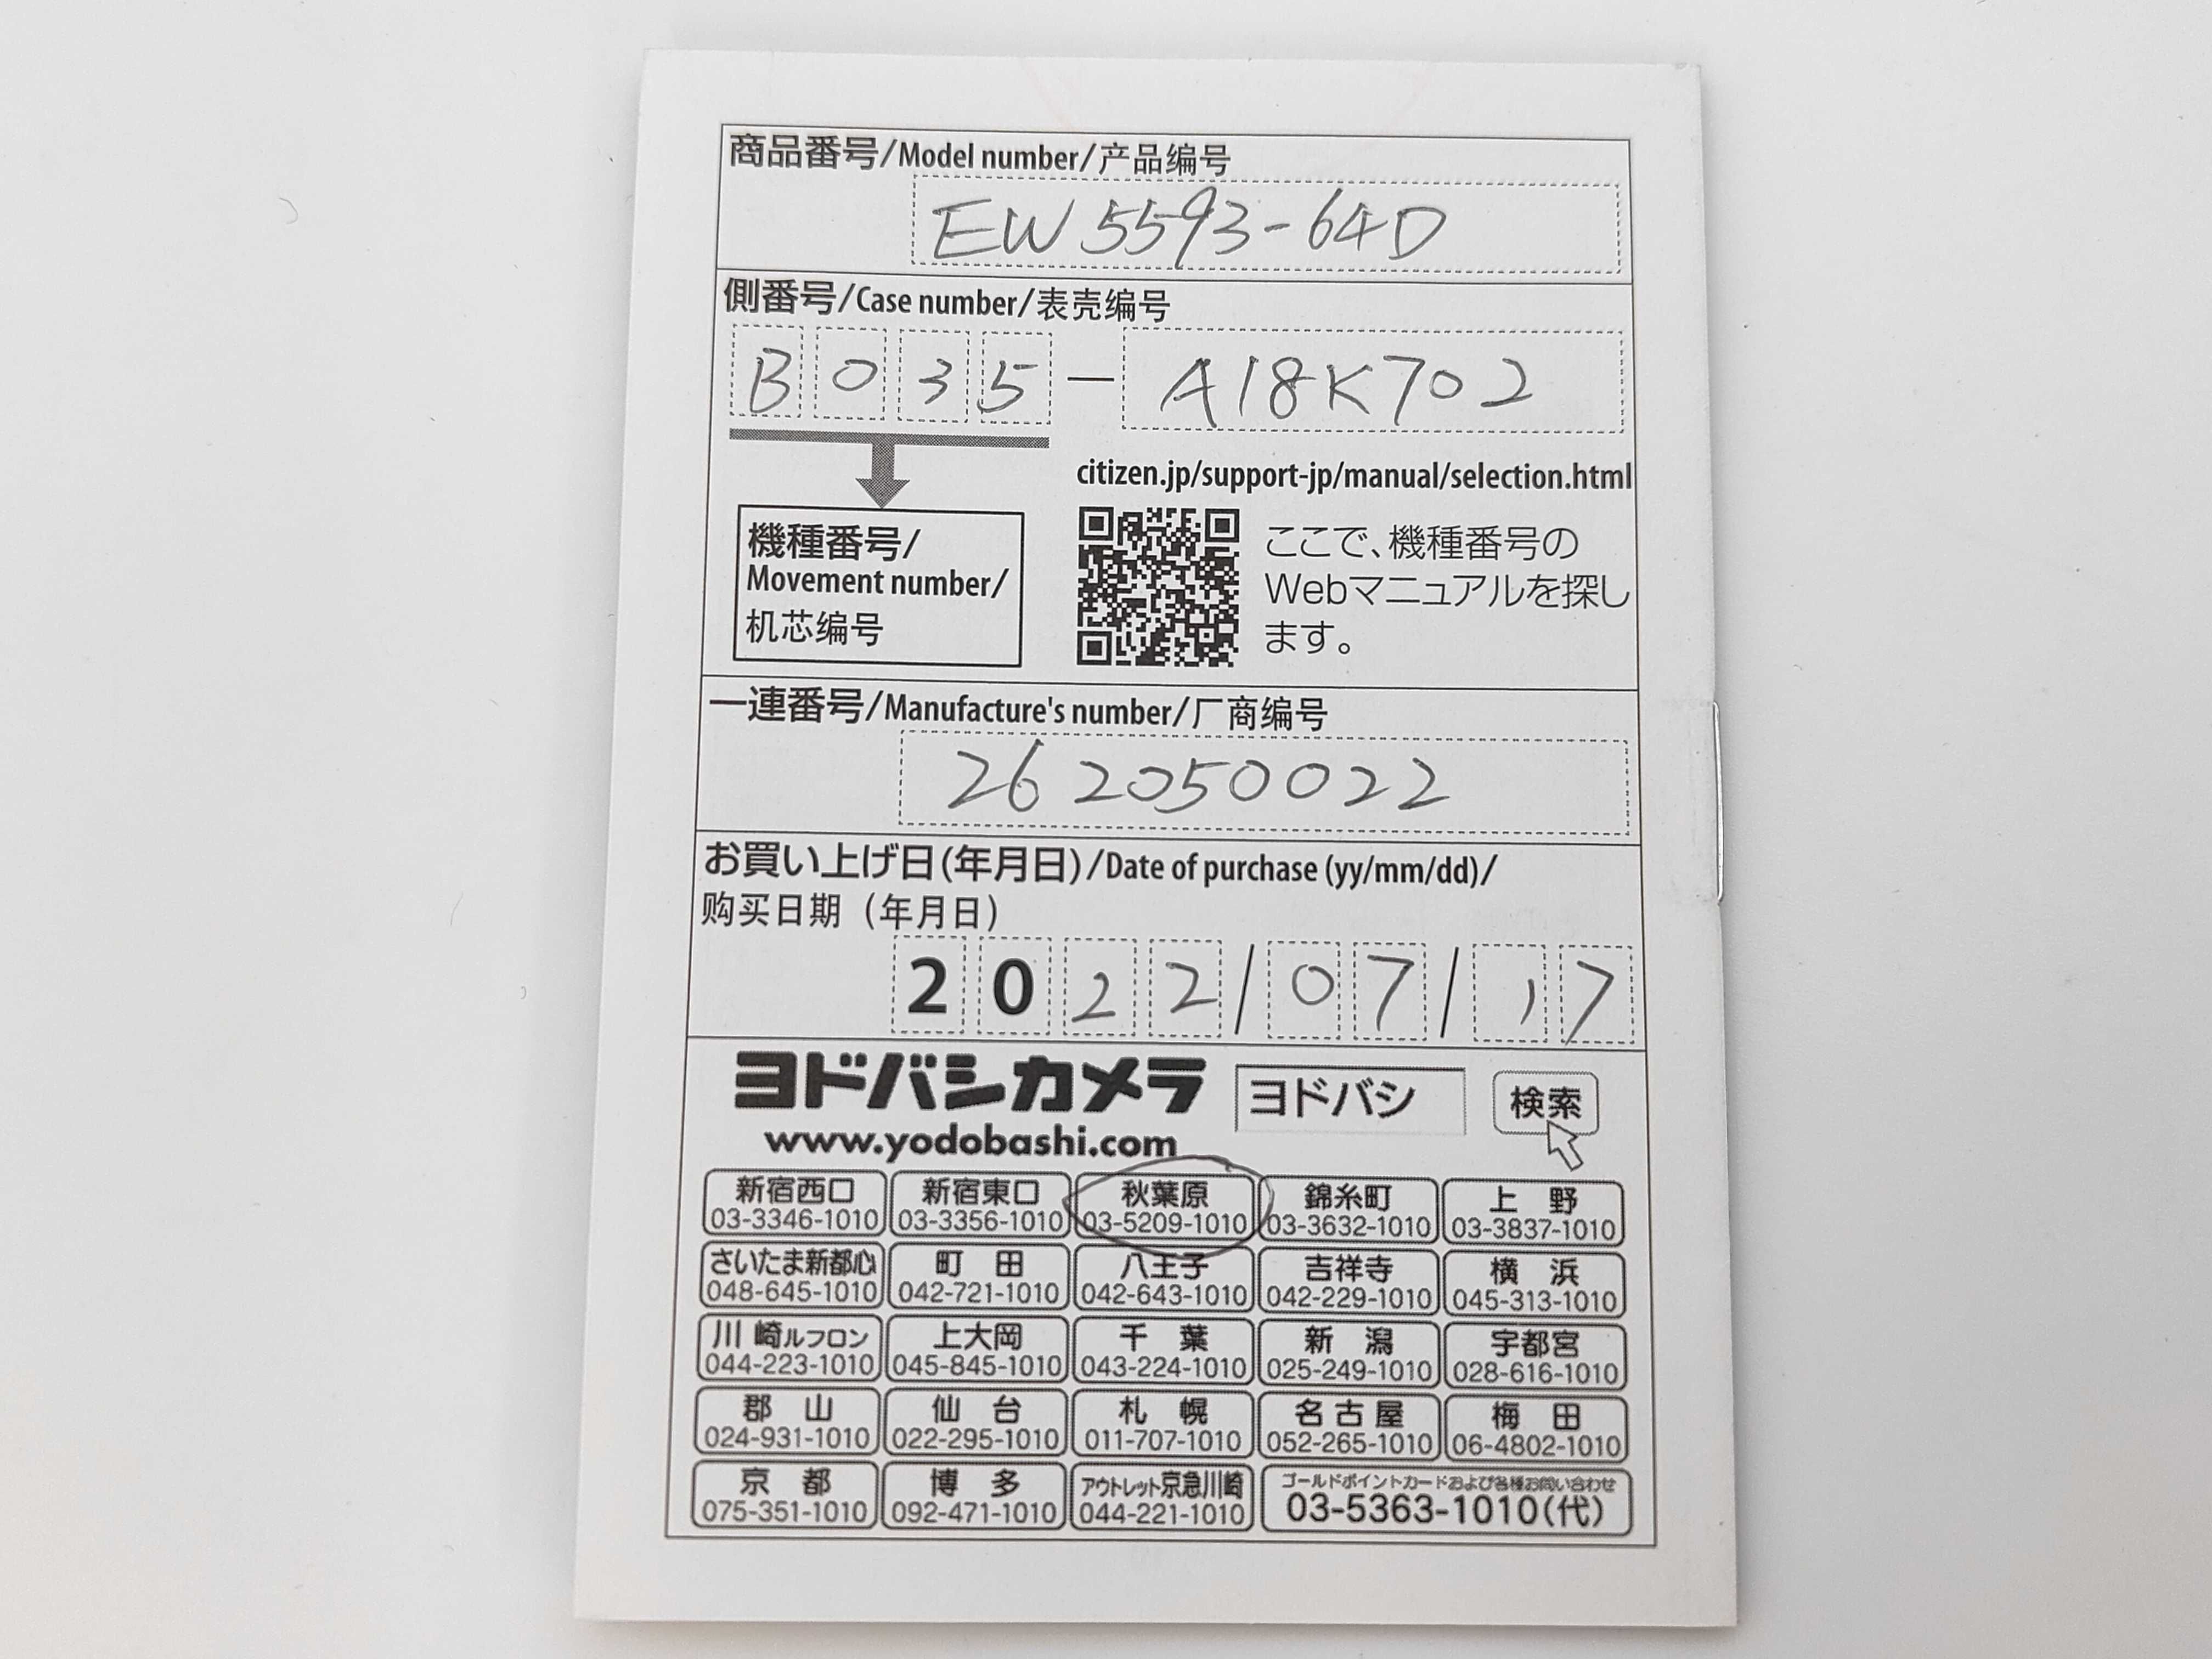 商品番号/Model number/产品编号
EW5593-64D
側番号/Case number/表壳编号
B035 — A18K702
citizen.jp/support-jp/manual/selection.html
機種番号/
Movement number/
机芯编号
ここで、機種番号の
Webマニュアルを探し
ます。
一連番号/Manufacture's number/厂商编号
262050022
お買い上げ日(年月日)/Date of purchase (yy/mm/dd)/
购买日期（年月日）
2022/07/17
ヨドバシカメラ ヨドバシ 検索
www.yodobashi.com
新宿西口 新宿東口 秋葉原 錦糸町 上野
03-3346-1010 03-3356-1010 03-5209-1010 03-3632-1010 03-3837-1010
さいたま新都心 町田 八王子 吉祥寺 横浜
048-645-1010 042-721-1010 042-643-1010 042-229-1010 045-313-1010
川崎ルフロン 上大岡 千葉 新潟 宇都宮
044-223-1010 045-845-1010 043-224-1010 025-249-1010 028-616-1010
郡山 仙台 札幌 名古屋 梅田
024-931-1010 022-295-1010 011-707-1010 052-265-1010 06-4802-1010
京都 博多 アウトレット京急川崎 ゴールドポイントカードおよび各種お問い合わせ
075-351-1010 092-471-1010 044-221-1010 03-5363-1010(代)